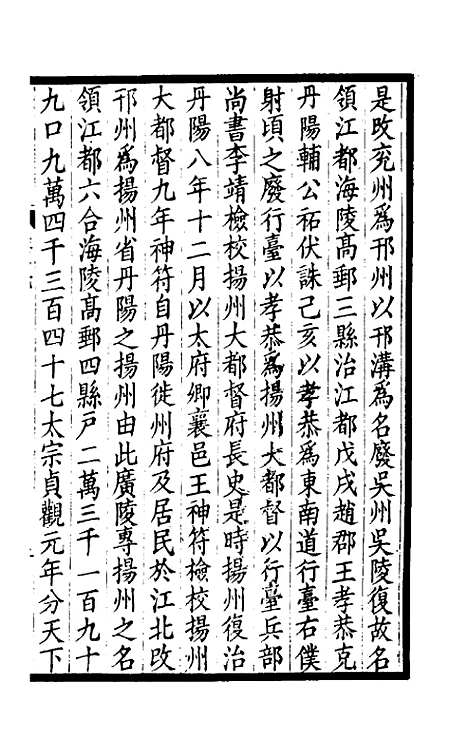 是改兖州爲邗州以邗溝爲名廢吳州吳陵復故名
領江都海陵髙郵三縣治江都戊戌趙郡王孝恭克
丹陽輔公祏伏誅己亥以孝恭爲東南道行臺右僕
射頃之廢行臺以孝恭爲揚州大都督以行臺兵部
尚書李靖檢校揚州大都督府長史是時揚州復治
丹陽八年十二月以太府卿襄邑王神符檢校揚州
大都督九年神符自丹陽徙州府及居民於江北改
邗州爲揚州省丹陽之揚州由此廣陵專揚州之名
領江都六合海陵髙郵四縣戸二萬三千一百九十
九口九萬四千三百四十七太宗貞觀元年分天下